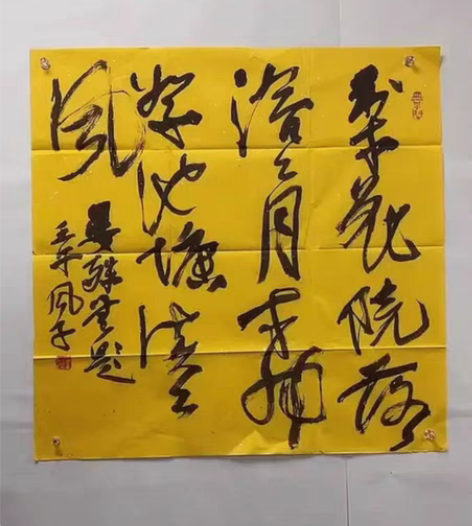 梨花院落
溶々月柳
絮池塘淡々
风
晏殊无题
风子